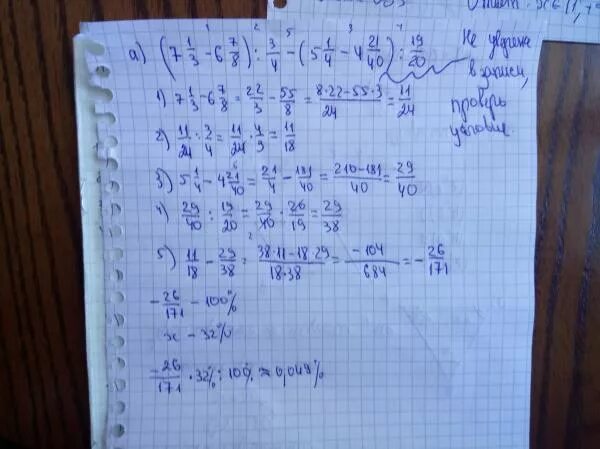 Ответ:
а) (7 1/3 - 6 7/8) : 3/4 - (5 1/4 - 4 21/40) : 19/20
Не уверена в записи, проверь условие.
1) 7 1/3 - 6 7/8 = 22/3 - 55/8 = (8·22-55·3)/24 = 11/24
2) 11/24 : 3/4 = 11/24 · 4/3 = 11/18
3) 5 1/4 - 4 21/40 = 21/4 - 181/40 = (210-181)/40 = 29/40
4) 29/40 : 19/20 = 29/40 · 20/19 = 29/38
5) 11/18 - 29/38 = (38·11-18·29)/(18·38) = -104/684 = -26/171
-26/171 - 100%
x - 32%
-26/171 · 32% : 100% ≈ 0,049%